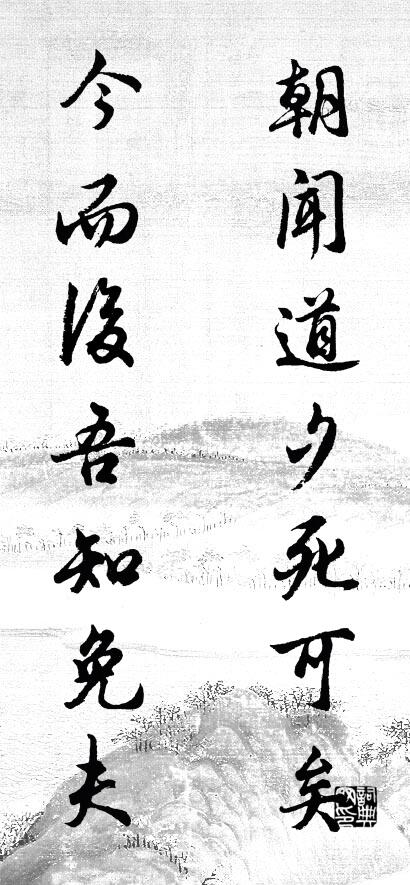 朝聞道夕死可矣
今而後吾知免夫